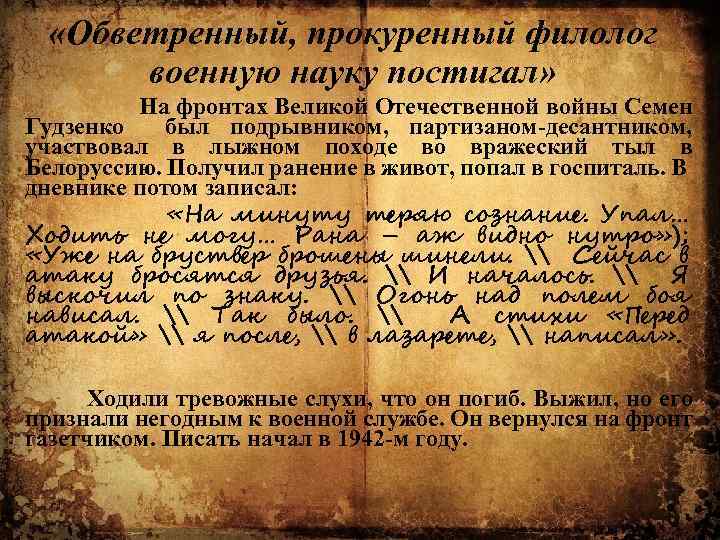 «Обветренный, прокуренный филолог
военную науку постигал»
На фронтах Великой Отечественной войны Семен
Гудзенко был подрывником, партизаном-десантником,
участвовал в лыжном походе во вражеский тыл в
Белоруссию. Получил ранение в живот, попал в госпиталь. В
дневнике потом записал:
«На минуту теряю сознание. Упал...
Ходить не могу... Рана – аж видно нутро»);
«Уже на бруствер брошены шинели. \\ Сейчас в
атаку бросятся друзья. \\ И началось. \\ Я
выскочил по знаку. \\ Огонь над полем боя
нависал. \\ Так было. \\ А стихи «Перед
атакой» \\ я после, \\ в лазарете, \\ написал».
Ходили тревожные слухи, что он погиб. Выжил, но его
признали негодным к военной службе. Он вернулся на фронт
газетчиком. Писать начал в 1942-м году.